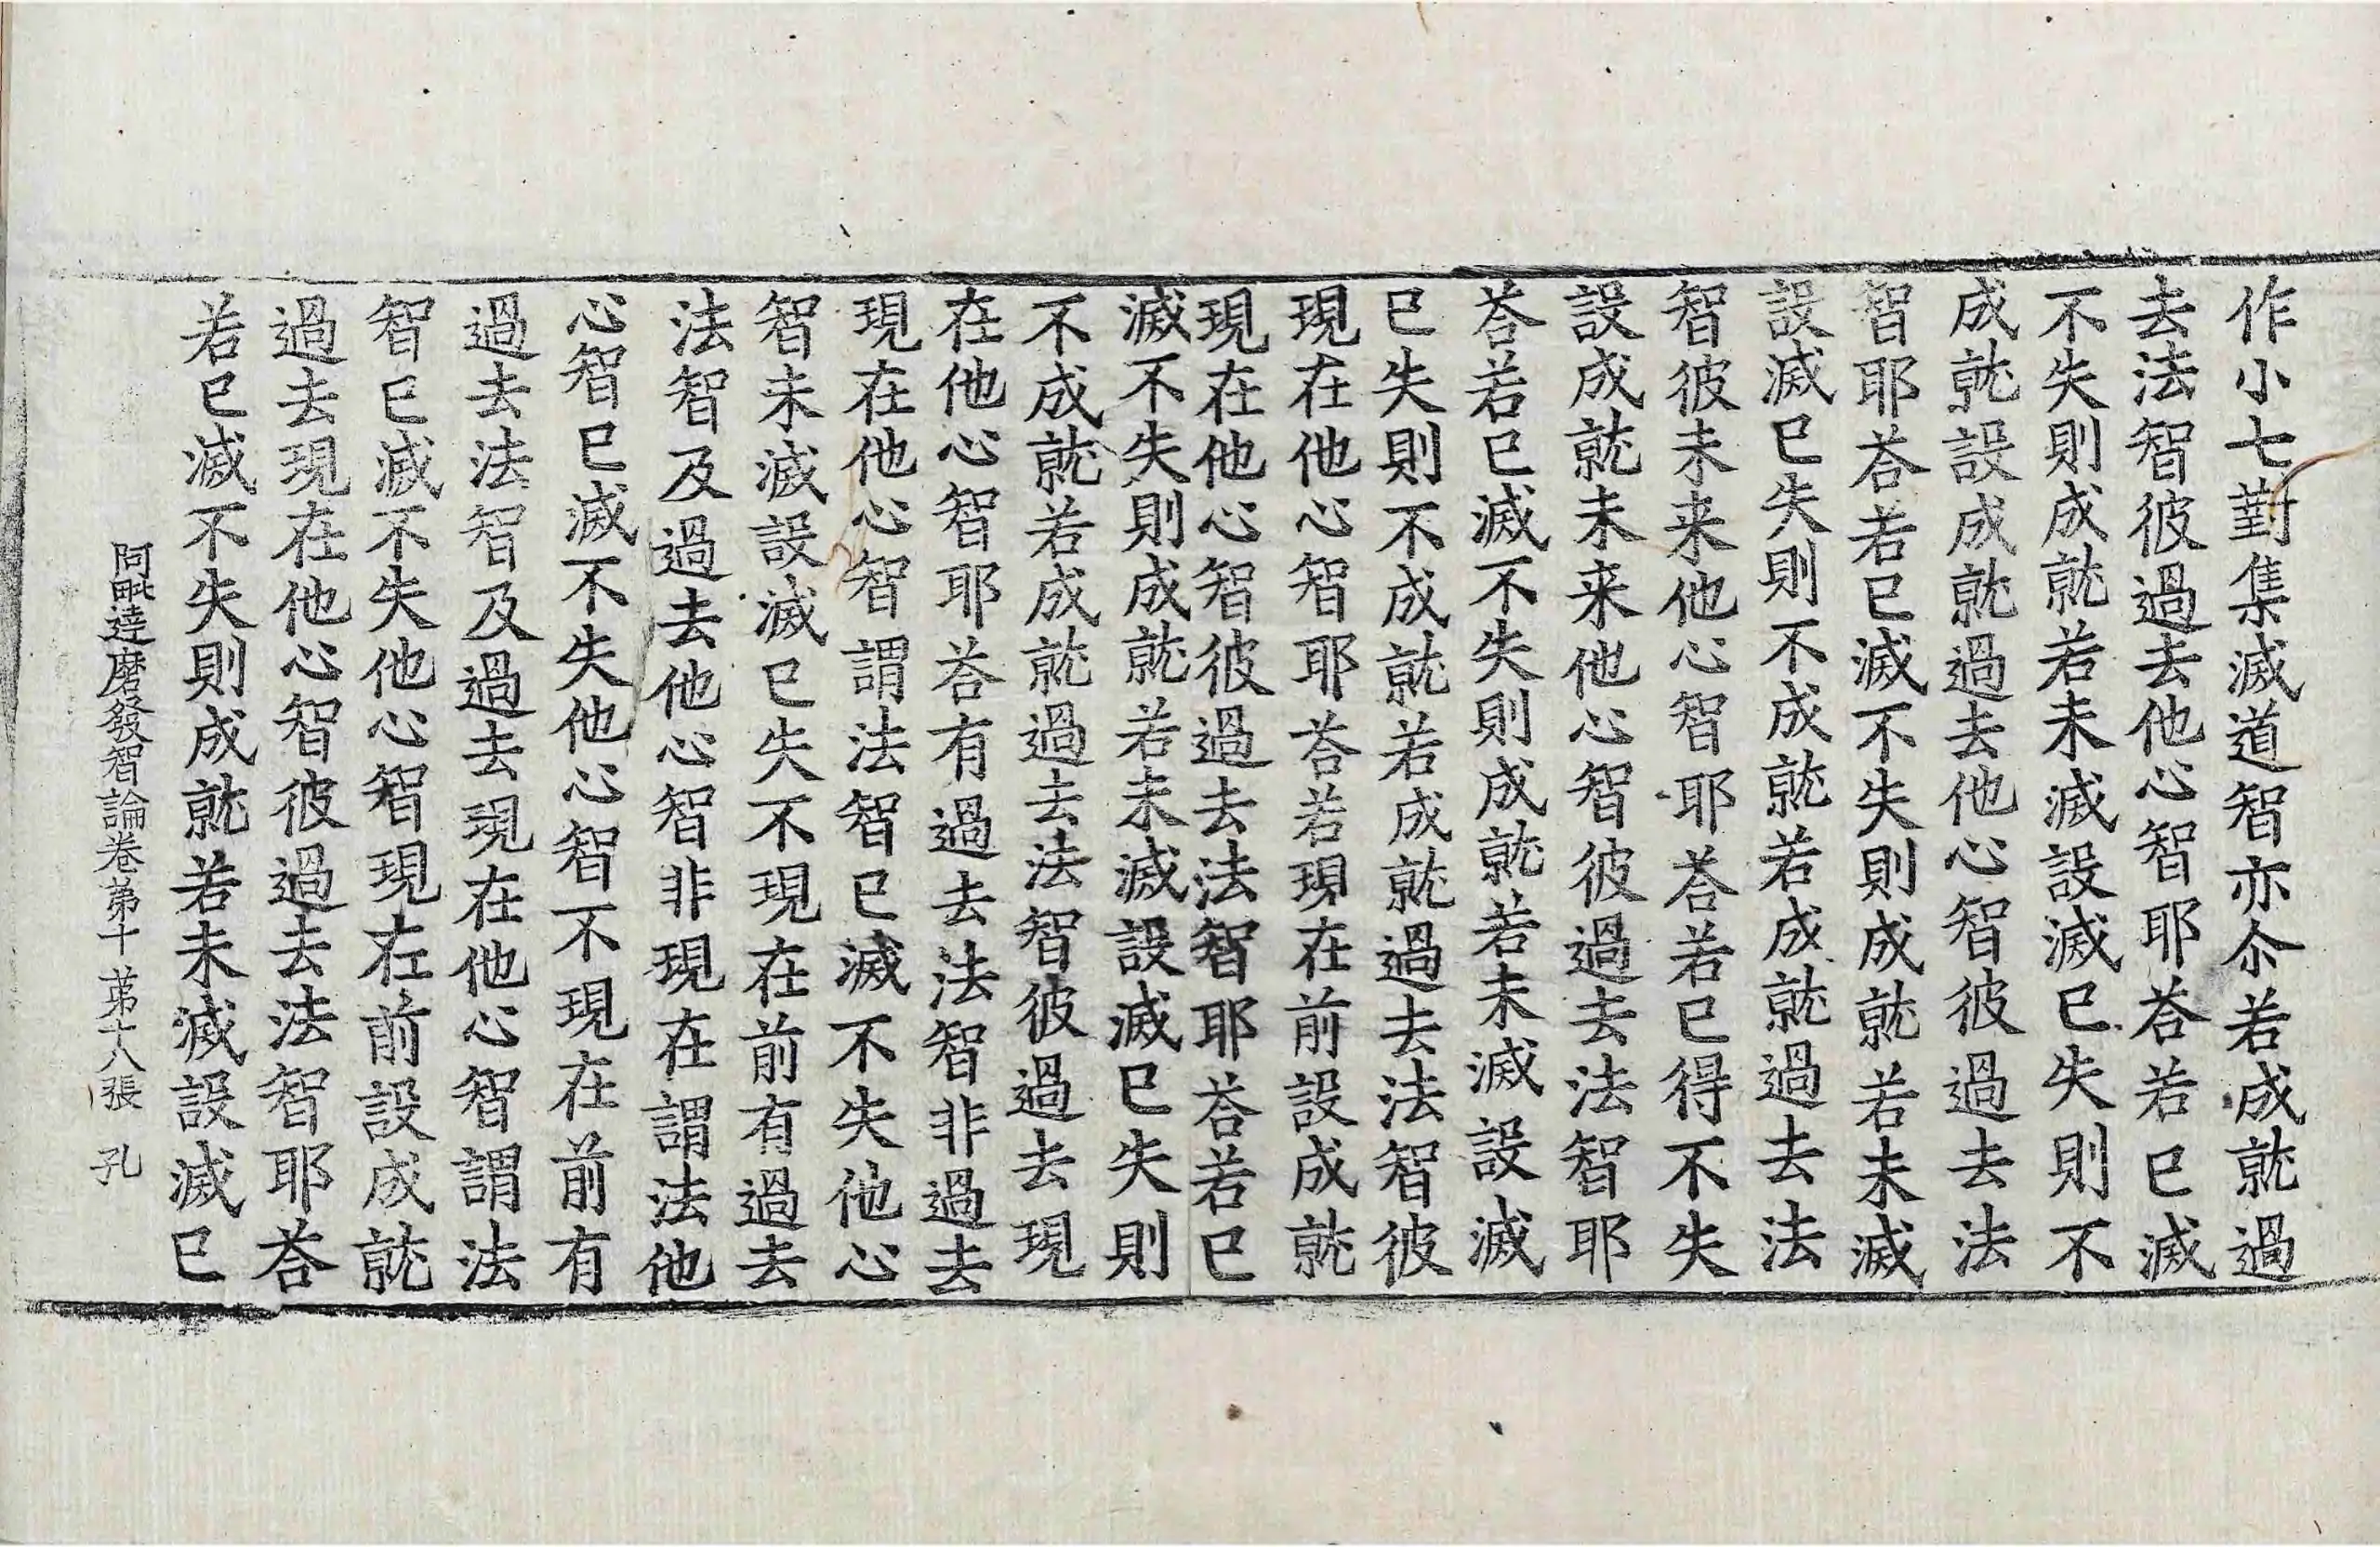 作小七對集滅道智亦尒若成就過
去法智彼過去他心智耶荅若已滅
不失則成就若未滅設滅已失則不
成就設成就過去他心智彼過去法
智耶荅若已滅不失則成就若未滅
設滅已失則不成就若成就過去法
智彼未来他心智耶荅若已得不失
設成就未来他心智彼過去法智耶
荅若已滅不失則成就若未滅設滅
已失則不成就若成就過去法智彼
現在他心智耶荅若現在前設成就
現在他心智彼過去法智耶荅若已
滅不失則成就若未滅設滅已失則
不成就若成就過去法智彼過去現
在他心智耶荅有過去法智非過去
現在他心智謂法智已滅不失他心
智未滅設滅已失不現在前有過去
法智及過去他心智非現在謂法他
心智已滅不失他心智不現在前有
過去法智及過去現在他心智謂法
智已滅不失他心智現在前設成就
過去現在他心智彼過去法智耶荅
若已滅不失則成就若未滅設滅已
阿毗達磨發智論卷苐十 苐十八張 孔